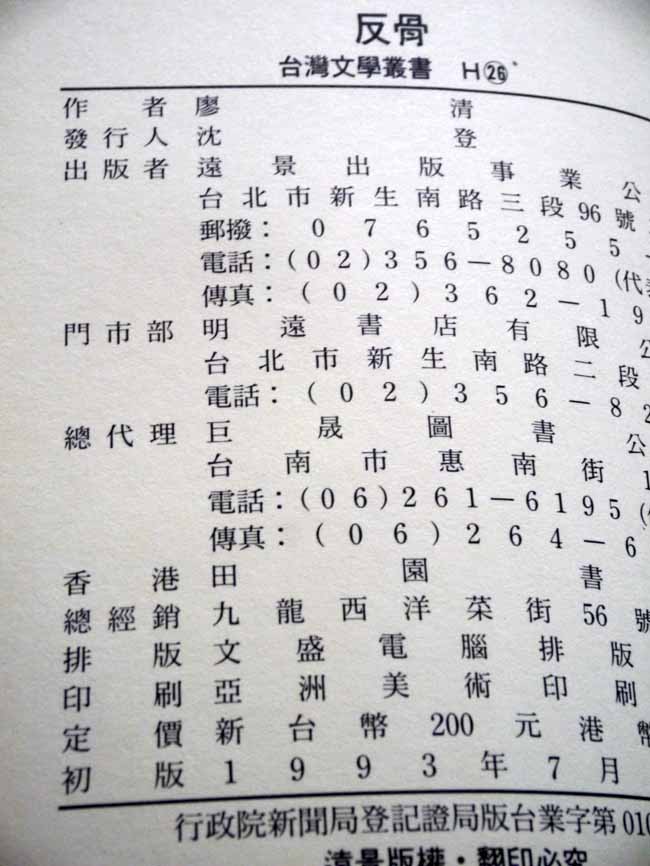 反骨
台灣文學叢書 H㉖
作者廖清
發行人沈登
出版者遠景出版事業公
台北市新生南路三段96號
郵撥：0765255-
電話：(02)356-8080(代表
傳真：(02)362-19
門市部明遠書店有限公
台北市新生南路二段
電話：(02)356-82
總代理巨晟圖書公
台南市惠南街1
電話：(06)261-6195(
傳真：(06)264-6
香港田園書
總經銷九龍西洋菜街56號
排版文盛電腦排版
印刷亞洲美術印刷
定價新台幣200元港幣
初版1993年7月
行政院新聞局登記證局版台業字第010
遠景版權·翻印必究